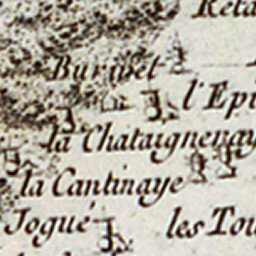 Reta
Burinet
l'Epi
la Chataigneray
la Cantinaye
Jogué
les Tou